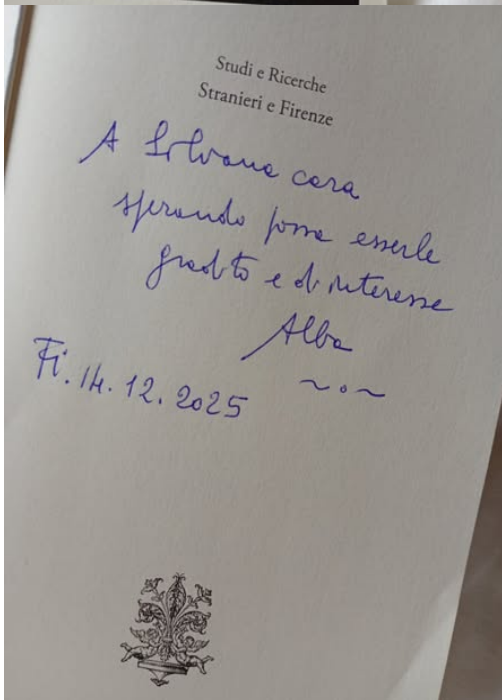 Studi e Ricerche
Stranieri e Firenze
A Silvana cara
sperando possa esserle
gradito e di interesse
Alba
~.~
Fi. 14. 12. 2025